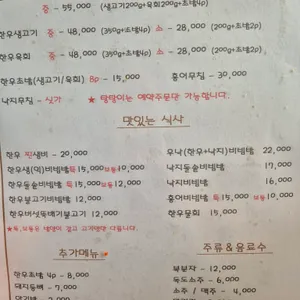 중 - 55,000 (생고기200g+육회200g+초밥4p)
한우생고기 중 - 48,000 (350g+초밥4p) 소 - 28,000 (200g+초밥2p)
한우육회 중 - 48,000 (350g+초밥4p) 소 - 28,000 (200g+초밥2p)
한우초밥(생고기/육회) 8p - 15,000 홍어무침 - 30,000
낙지무침 - 싯가 ★ 탕탕이는 예약주문만 가능합니다.
맛있는 식사
한우 찌갈비 - 20,000
한우생(익)비빔밥 특 15,000 보통 10,000
한우돌솥비빔밥 특 15,000 보통 12,000
한우불고기비빔밥 12,000
한우버섯뚝배기불고기 12,000
무낙(한우+낙지)비빔밥 22,000
낙지돌솥비빔밥 17,000
낙지비빔밥 16,000
홍어비빔밥 특 15,000 보통 10,000
한우물회 15,000
추가메뉴
한우초밥 4p - 8,000
돼지등뼈 - 7,000
주류 & 음료수
복분자 - 12,000
독도소주 - 6,000
소주 / 맥주 - 4,000